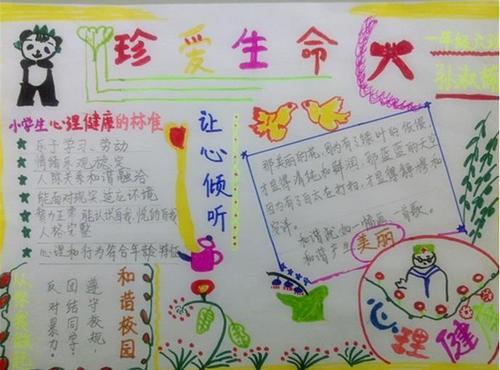 珍爱生命
一年级六班
小学生心理健康的标准
乐于学习、劳动
情绪乐观稳定
人际关系和谐融洽
能面对现实适应环境
智力正常，能认识自我，悦纳自我
人格完整
心理和行为符合年龄特征
让心倾听
那美丽的花，因为有了绿叶的依偎
才显得清纯和鲜润，那蓝蓝的天空
因为有了白云在打扮，才显得静穆和
安详。
和谐就如一幅画，一首歌。
和谐产生美丽
和谐校园
遵守校规，
团结同学，
反对暴力。
心理健康